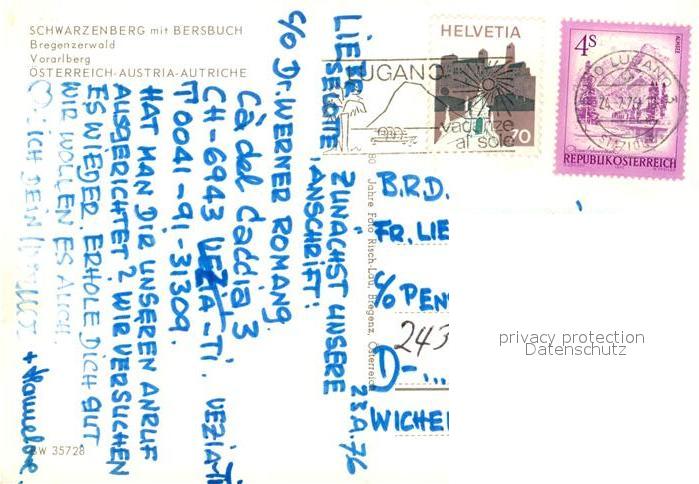 SCHWARZENBERG mit BERSBUCH
Bregenzerwald
Vorarlberg
ÖSTERREICH-AUSTRIA-AUTRICHE
HELVETIA
70
LUGANO
vacanze
al sole
ACHSEE
4s
REPUBLIK ÖSTERREICH
LUGANO
23.1.76
LIEBE
SELOTTE, ZUNÄCHST UNSERE
ANSCHRIFT:
c/o Dr. WERNER ROMANG
Cà del Caccia 3
CH-6943 VEZIA-TI. VEZIA-TI
0041-91-31309.
HAT MAN DIR UNSEREN ANRUF
AUSGERICHTET? WIR VERSUCHEN
ES WIEDER. ERHOLE DICH GUT.
WIR WOLLEN ES AUCH.
ICH DEIN
+ Hannelore.
B.R.D.
FR. LIE
c/o PEN
243
D-...
WICHE
80 Jahre Foto Risch-Lau, Bregenz, Österreich
BW 35728
privacy protection
Datenschutz